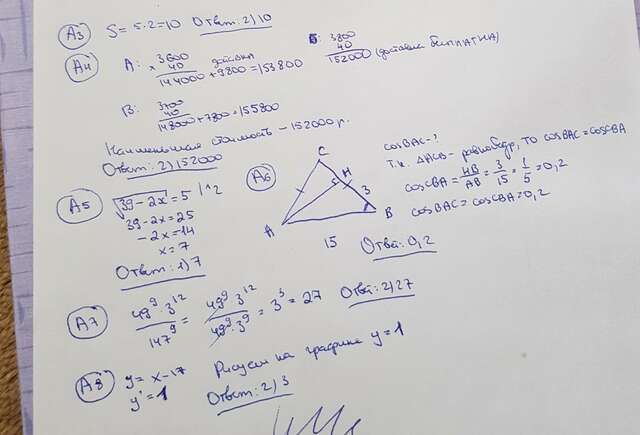 А3 S = 5·2=10 Ответ: 2) 10
А4 А: × 3600
40
144000 + 9800 = 153800
доставка
Б: 3800
40
152000 (доставка бесплатна)
В: 3700
40
148000 + 7800 = 155800
Наименьшая стоимость – 152000 р.
Ответ: 2) 152000
А5 √39-2x = 5 |^2
39-2x=25
-2x=-14
x=7
Ответ: 1) 7
А6
C
H
3
A
B
15
cosBAC-?
Т.к. ΔACB- равнобедр, то cosBAC=cosCBA
cosCBA = HB/AB = 3/15 = 1/5 = 0,2
cosBAC = cosCBA = 0,2
Отв: 0,2
А7 49⁹·3¹²/147⁹ = 49⁹·3¹²/49⁹·3⁹ = 3³ = 27 Отв: 2) 27
А8 y = x-17 Рисуем на графике y=1
y' = 1
Ответ: 2) 3